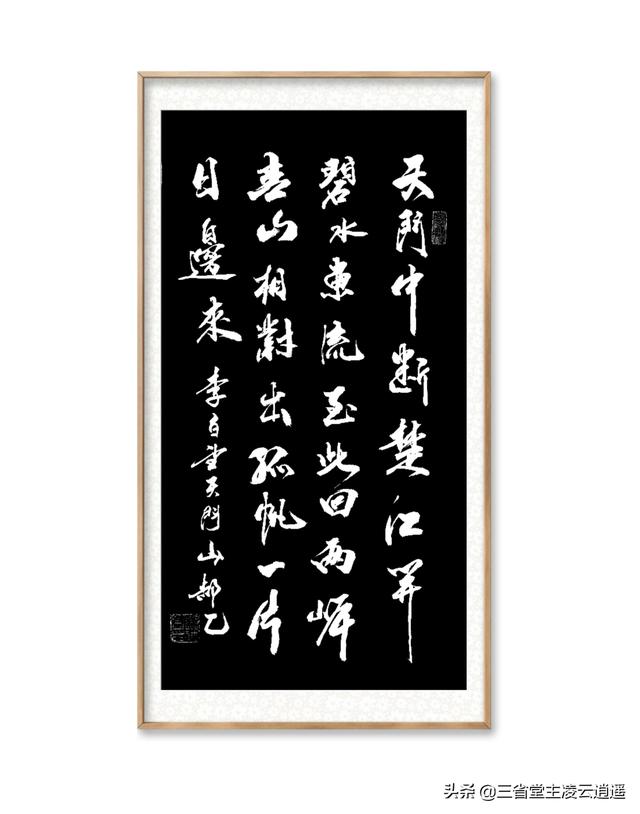 天門中斷楚江開
碧水東流至此回两岸
青山相對出孤帆一片
日邊來 李白望天門山 郝乙
头条 @三省堂主凌云逍遥